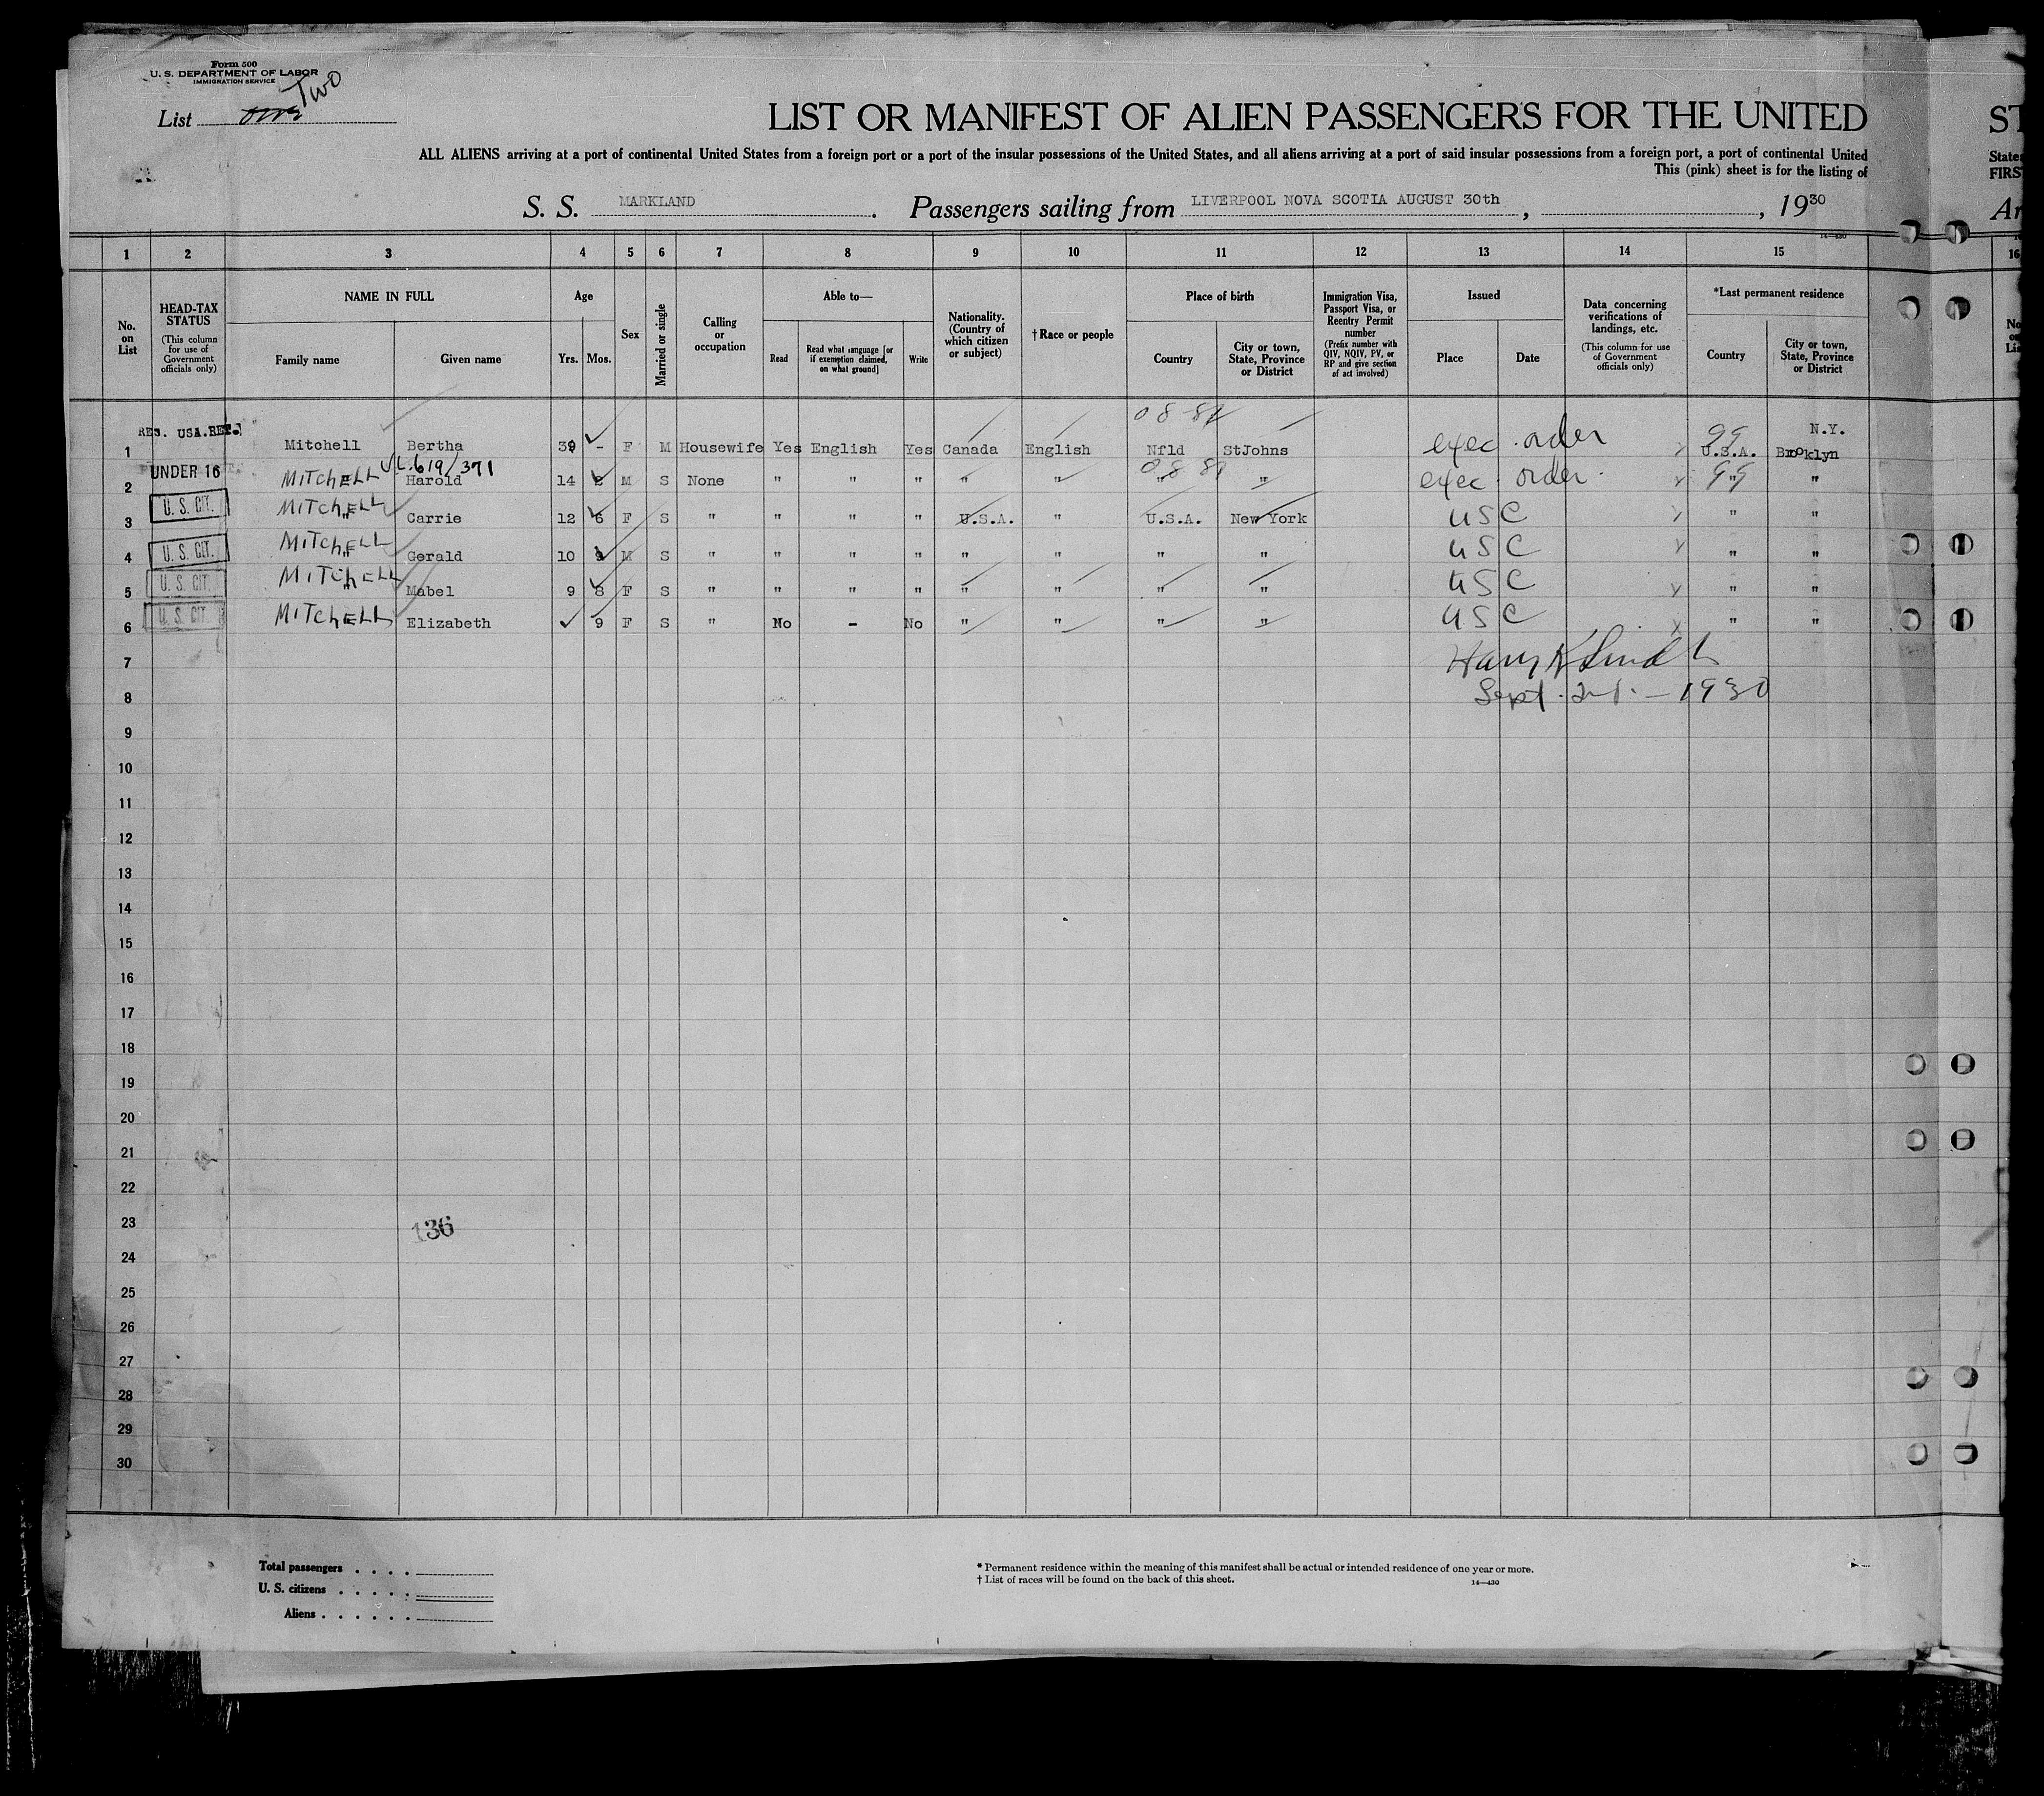 Form 500
U. S. DEPARTMENT OF LABOR
IMMIGRATION SERVICE
Two
List one
LIST OR MANIFEST OF ALIEN PASSENGERS FOR THE UNITED
ST
ALL ALIENS arriving at a port of continental United States from a foreign port or a port of the insular possessions of the United States, and all aliens arriving at a port of said insular possessions from a foreign port, a port of continental United
States
This (pink) sheet is for the listing of
FIRS
S. S. MARKLAND. Passengers sailing from LIVERPOOL NOVA SCOTIA AUGUST 30th, , 1930
Ar
14—430
1 2 3 4 5 6 7 8 9 10 11 12 13 14 15 16
No. on List
HEAD-TAX STATUS
(This column for use of Government officials only)
NAME IN FULL
Family name Given name
Age
Yrs. Mos.
Sex
Married or single
Calling or occupation
Able to—
Read Read what language [or if exemption claimed, on what ground] Write
Nationality. (Country of which citizen or subject)
† Race or people
Place of birth
Country City or town, State, Province or District
Immigration Visa, Passport Visa, or Reentry Permit number
(Prefix number with QIV, NQIV, PV, or RP and give section of act involved)
Issued
Place Date
Data concerning verifications of landings, etc.
(This column for use of Government officials only)
*Last permanent residence
Country City or town, State, Province or District
08-84 N.Y.
RES. USA.RET.
1 Mitchell Bertha 39 - F M Housewife Yes English Yes Canada English Nfld StJohns exec. order 99 U.S.A. Brooklyn
UNDER 16 L.619/371
2 MITCHELL Harold 14 M S None " " " " " " " exec. order 99 " "
3 U. S. CIT. MITCHELL " Carrie 12 6 F S " " " " U.S.A. " U.S.A. New York USC " "
4 U. S. CIT. MITCHELL " Gerald 10 M S " " " " " " " " USC " "
5 U. S. CIT. MITCHELL " Mabel 9 8 F S " " " " " " " " USC " "
6 U. S. CIT. MITCHELL Elizabeth 9 F S " No - No " " " " USC " "
7 Harry K
8 Sept. 1930
9
10
11
12
13
14
15
16
17
18
19
20
21
22
23 136
24
25
26
27
28
29
30
Total passengers . . . .
U. S. citizens . . . . .
Aliens . . . . . .
* Permanent residence within the meaning of this manifest shall be actual or intended residence of one year or more.
† List of races will be found on the back of this sheet. 14—430